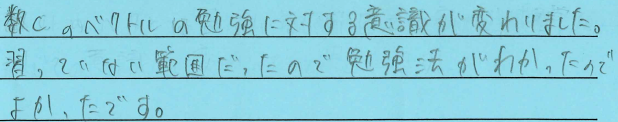 数Cのベクトルの勉強に対する意識が変わりました。
習っていない範囲だったので勉強法がわかったので
よかったです。